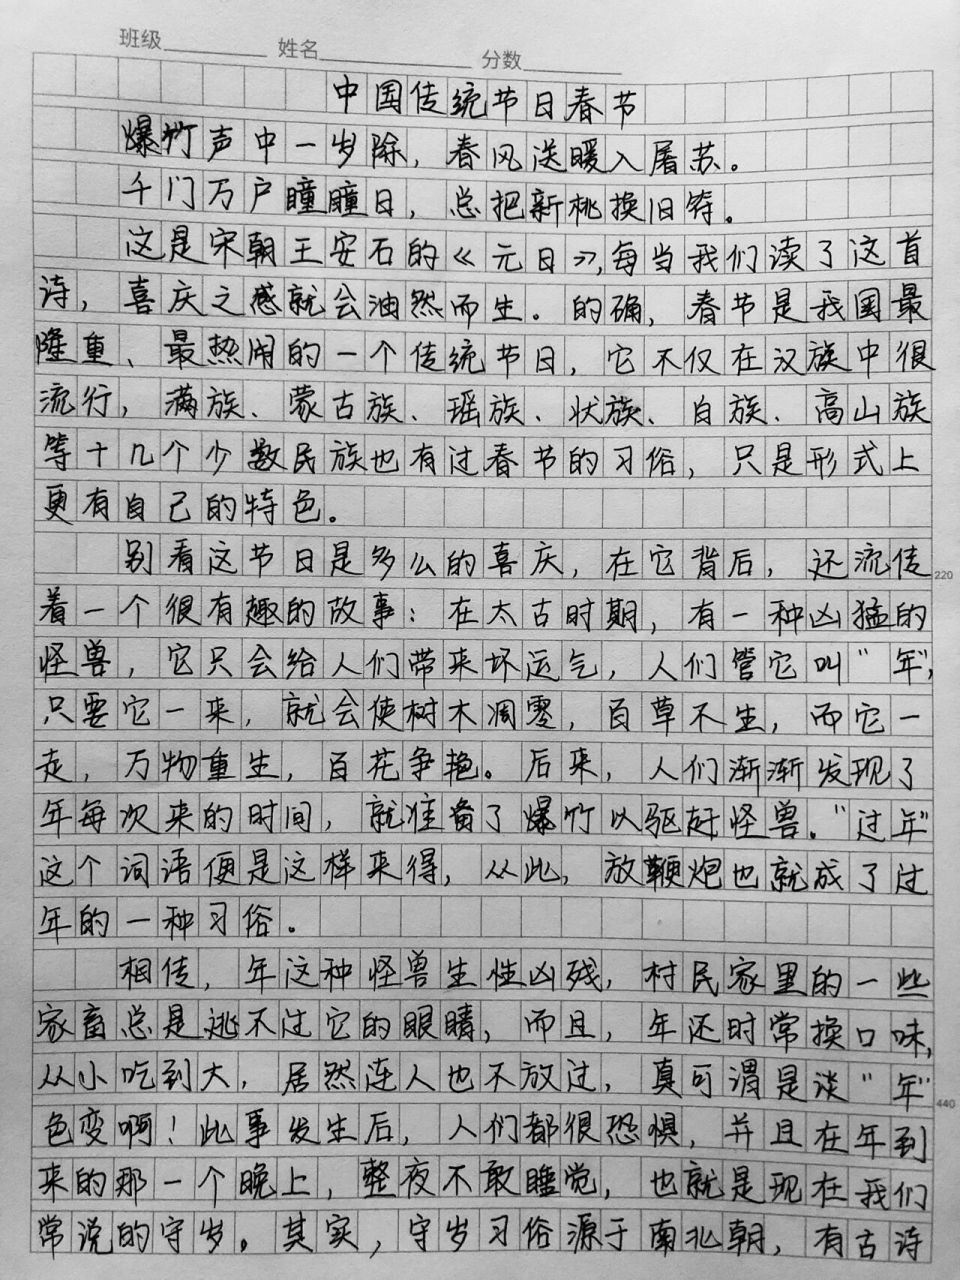 班级 姓名 分数
中国传统节日春节
爆竹声中一岁除，春风送暖入屠苏。
千门万户瞳瞳日，总把新桃换旧符。
这是宋朝王安石的《元日》，每当我们读了这首
诗，喜庆之感就会油然而生。的确，春节是我国最
隆重、最热闹的一个传统节日，它不仅在汉族中很
流行，满族、蒙古族、瑶族、状族、白族、高山族
等十几个少数民族也有过春节的习俗，只是形式上
更有自己的特色。
别看这节日是多么的喜庆，在它背后，还流传
220
着一个很有趣的故事：在太古时期，有一种凶猛的
怪兽，它只会给人们带来坏运气，人们管它叫“年”，
只要它一来，就会使树木凋零，百草不生，而它一
走，万物重生，百花争艳。后来，人们渐渐发现了
年每次来的时间，就准备了爆竹以驱赶怪兽。“过年”
这个词语便是这样来得，从此，放鞭炮也就成了过
年的一种习俗。
相传，年这种怪兽生性凶残，村民家里的一些
家畜总是逃不过它的眼睛，而且，年还时常换口味，
从小吃到大，居然连人也不放过，真可谓是谈“年”
440
色变啊！此事发生后，人们都很恐惧，并且在年到
来的那一个晚上，整夜不敢睡觉，也就是现在我们
常说的守岁。其实，守岁习俗源于南北朝，有古诗